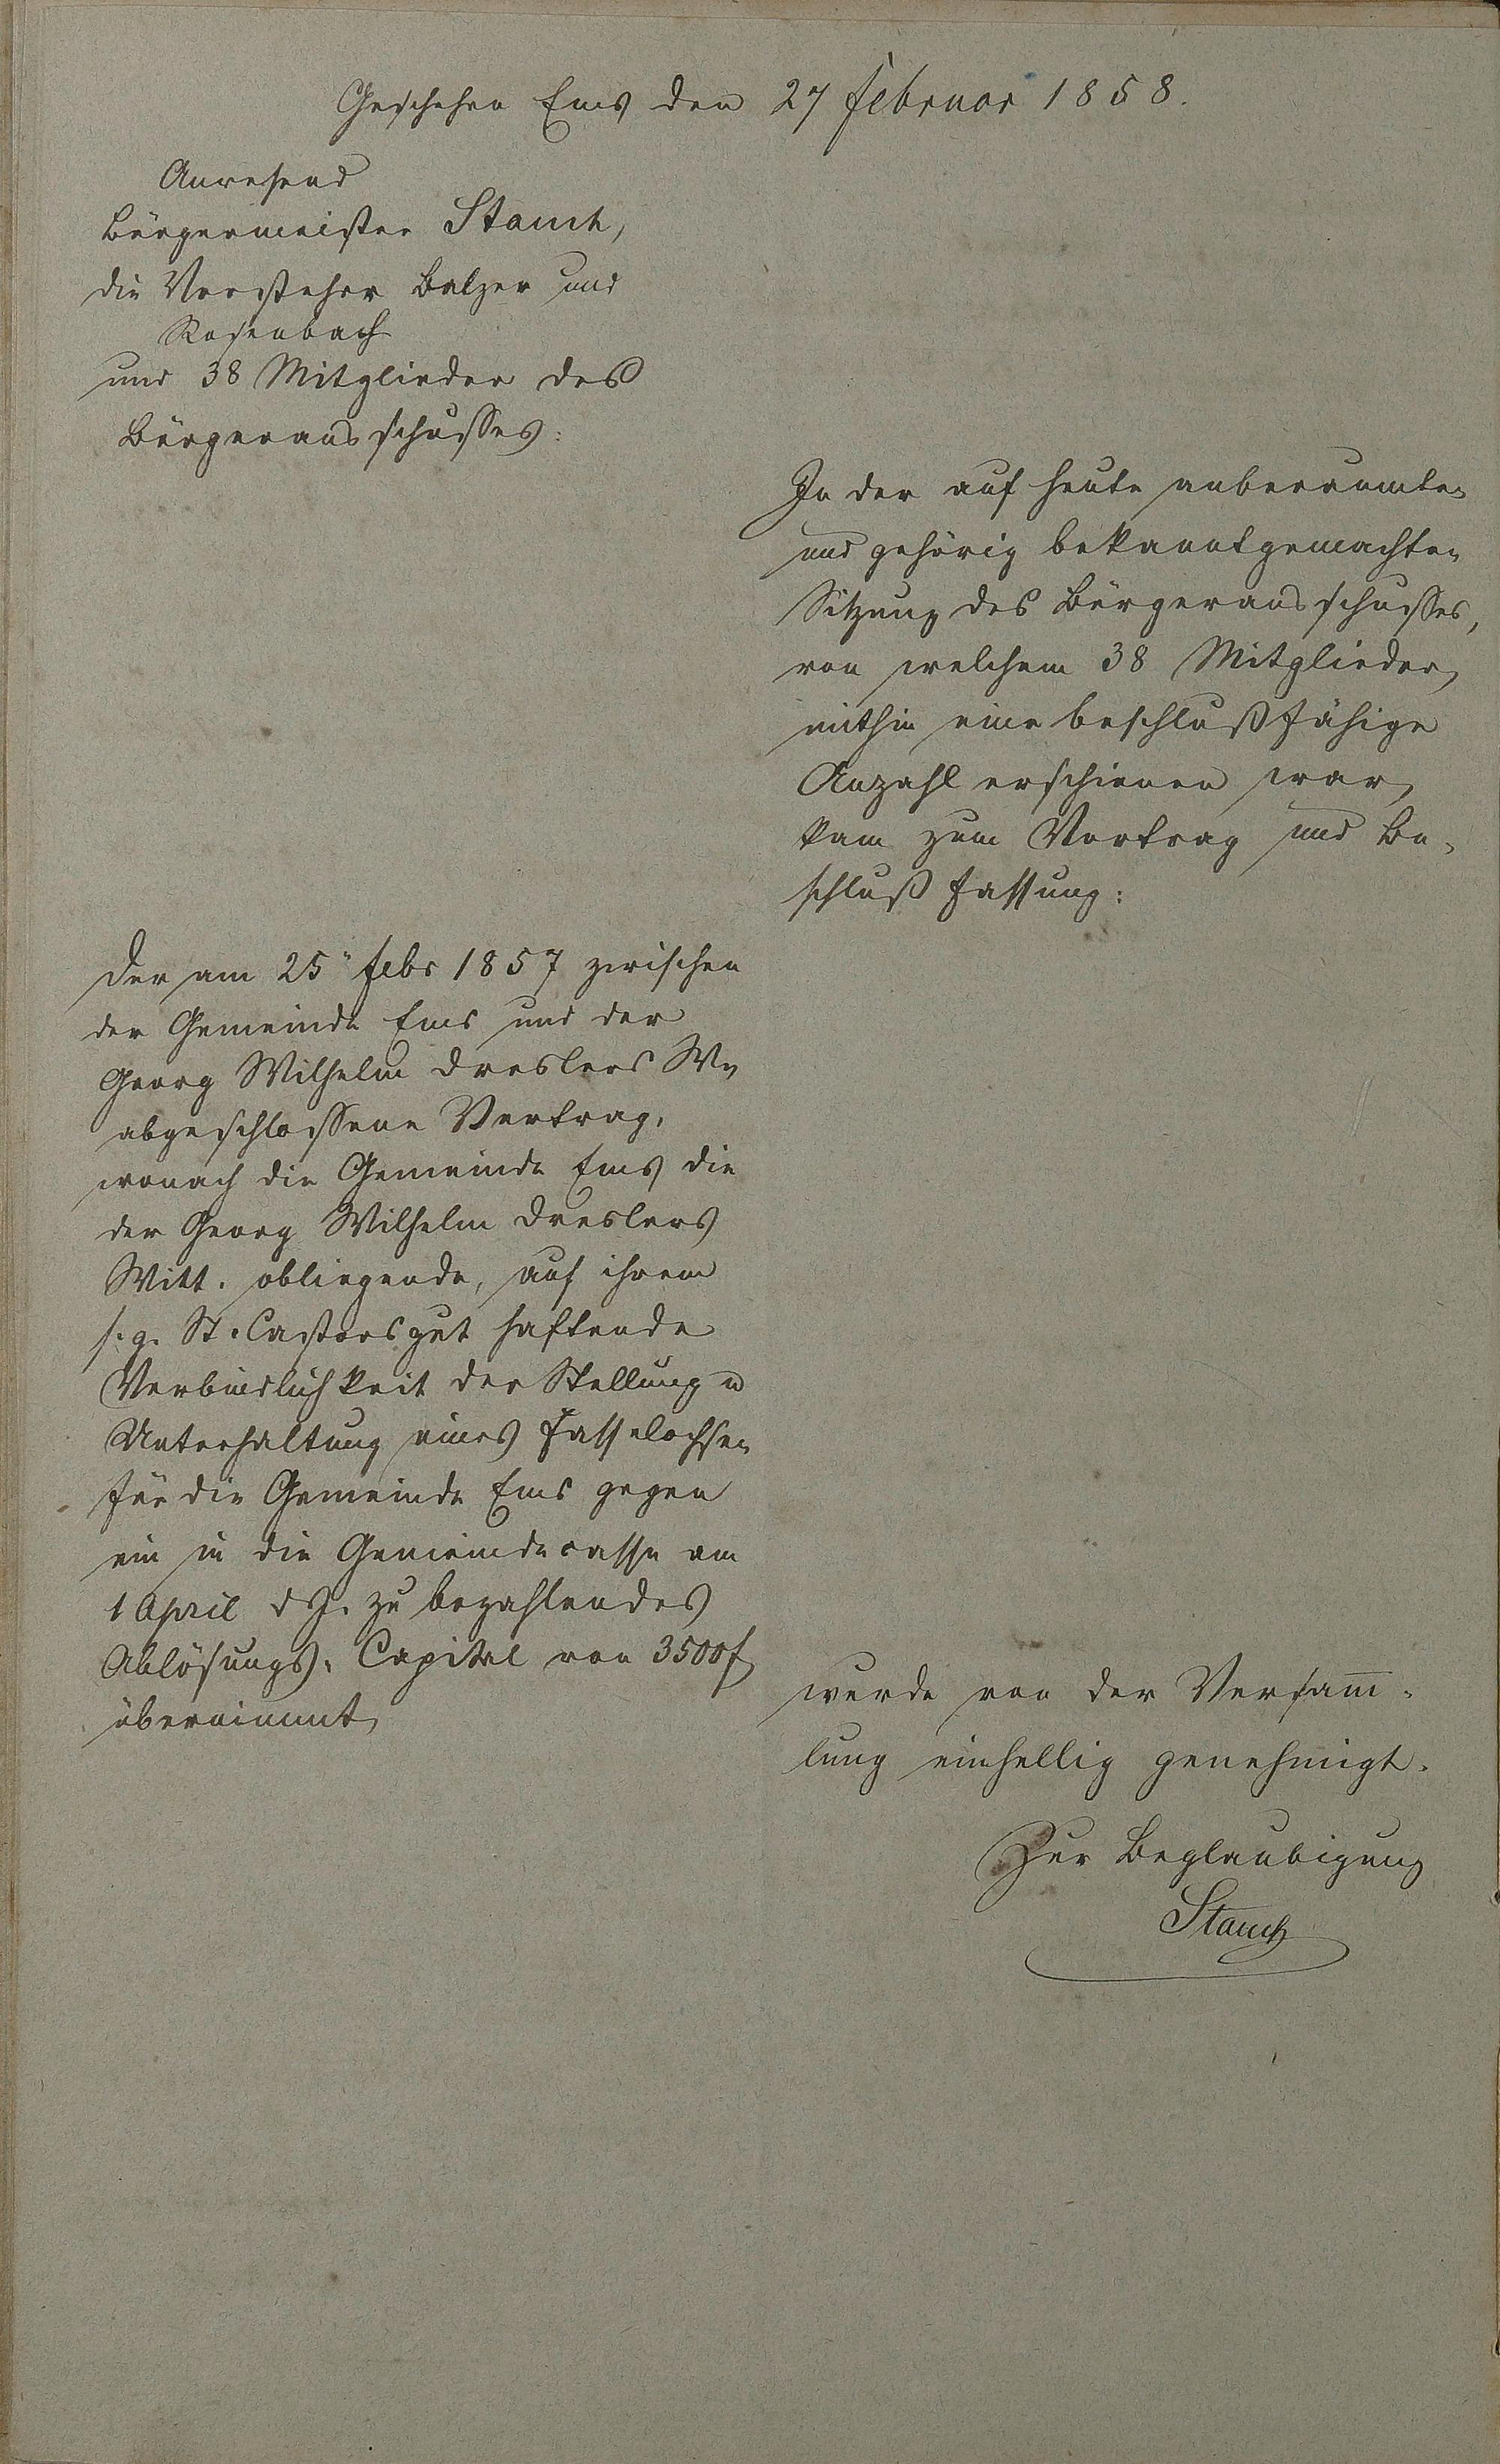 Geschehen Ems den 27 Februar 1858.
Anwesend
Bürgermeister Stauch,
die Vorsteher Balzer und
Rosenbach
und 38 Mitglieder des
Bürgerausschusses:
In der auf heute anberaumten
und gehörig bekanntgemachten
Sitzung des Bürgerausschusses,
von welchem 38 Mitglieder,
mithin eine beschlußfähige
Anzahl erschienen war,
kam zum Vortrag und Be-
schlußfassung:
Der am 25" Febr 1857 zwischen
der Gemeinde Ems und der
Georg Wilhelm Dreslers Wu
abgeschlossene Vertrag,
wonach die Gemeinde Ems die
der Georg Wilhelm Dreslers
Witt. obliegende, auf ihrem
s. g. St. Castorsgut haftende
Verbindlichkeit der Stellung u
Unterhaltung eines Fasselochsen
für die Gemeinde Ems gegen
ein in die Gemeindecasse am
1 April d J. zu bezahlendes
Ablösungs-Capital von 3500 f
übernimmt,
wurde von der Versam̅-
lung einhellig genehmigt.
Zur Beglaubigung
Stauch